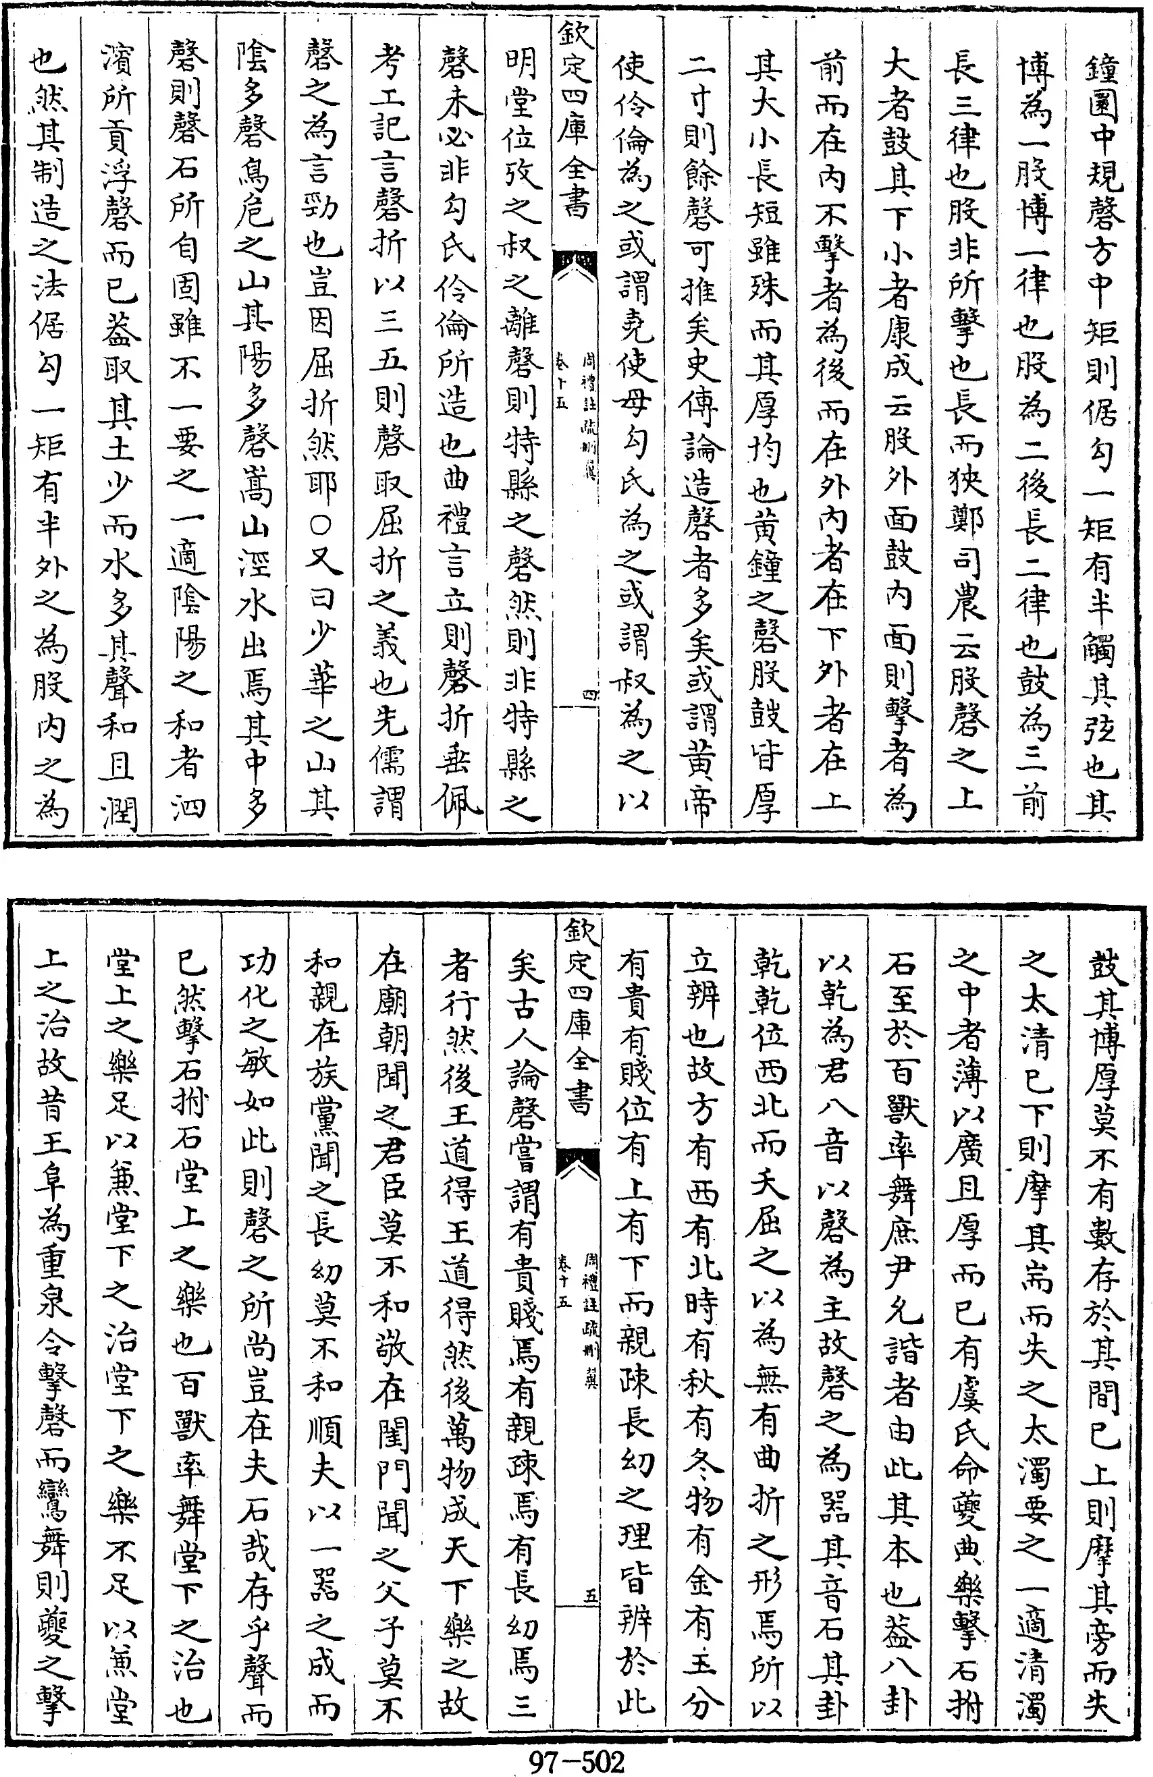 鐘圜中規磬方中矩則倨勾一矩有半觸其弦也其
博為一股博一律也股為二後長二律也鼓為三前
長三律也股非所擊也長而狹鄭司農云股磬之上
大者鼓其下小者康成云股外面鼓内面則擊者為
前而在内不擊者為後而在外内者在下外者在上
其大小長短雖殊而其厚均也黄鐘之磬股鼓皆厚
二寸則餘磬可推矣史傳論造磬者多矣或謂黄帝
使伶倫為之或謂堯使母勾氏為之或謂叔為之以
欽定四庫全書
周禮註疏刪翼
卷十五
四
明堂位攷之叔之離磬則特縣之磬然則非特縣之
磬未必非勾氏伶倫所造也曲禮言立則磬折垂佩
考工記言磬折以三五則磬取屈折之義也先儒謂
磬之為言勁也豈因屈折然耶○又曰少華之山其
陰多磬鳥危之山其陽多磬嵩山涇水出焉其中多
磬則磬石所自固雖不一要之一適陰陽之和者泗
濱所貢浮磬而已葢取其土少而水多其聲和且潤
也然其制造之法倨勾一矩有半外之為股内之為
鼓其博厚莫不有數存於其間已上則摩其旁而失
之太清已下則摩其耑而失之太濁要之一適清濁
之中者薄以廣且厚而已有虞氏命夔典樂擊石拊
石至於百獸率舞庶尹允諧者由此其本也葢八卦
以乾為君八音以磬為主故磬之為器其音石其卦
乾乾位西北而天屈之以為無有曲折之形焉所以
立辨也故方有西有北時有秋有冬物有金有玉分
有貴有賤位有上有下而親疎長幼之理皆辨於此
欽定四庫全書
周禮註疏刪翼
卷十五
五
矣古人論磬嘗謂有貴賤焉有親疎焉有長幼焉三
者行然後王道得王道得然後萬物成天下樂之故
在廟朝聞之君臣莫不和敬在閨門聞之父子莫不
和親在族黨聞之長幼莫不和順夫以一器之成而
功化之敏如此則磬之所尚豈在夫石哉存乎聲而
已然擊石拊石堂上之樂也百獸率舞堂下之治也
堂上之樂足以兼堂下之治堂下之樂不足以兼堂
上之治故昔王阜為重泉令擊磬而鸞舞則夔之擊
97-502